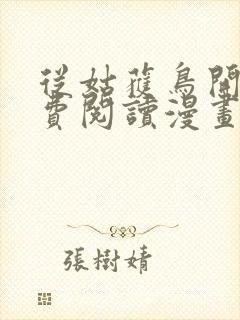 從姑獲鳥開
費閱讀漫畫
張樹婧